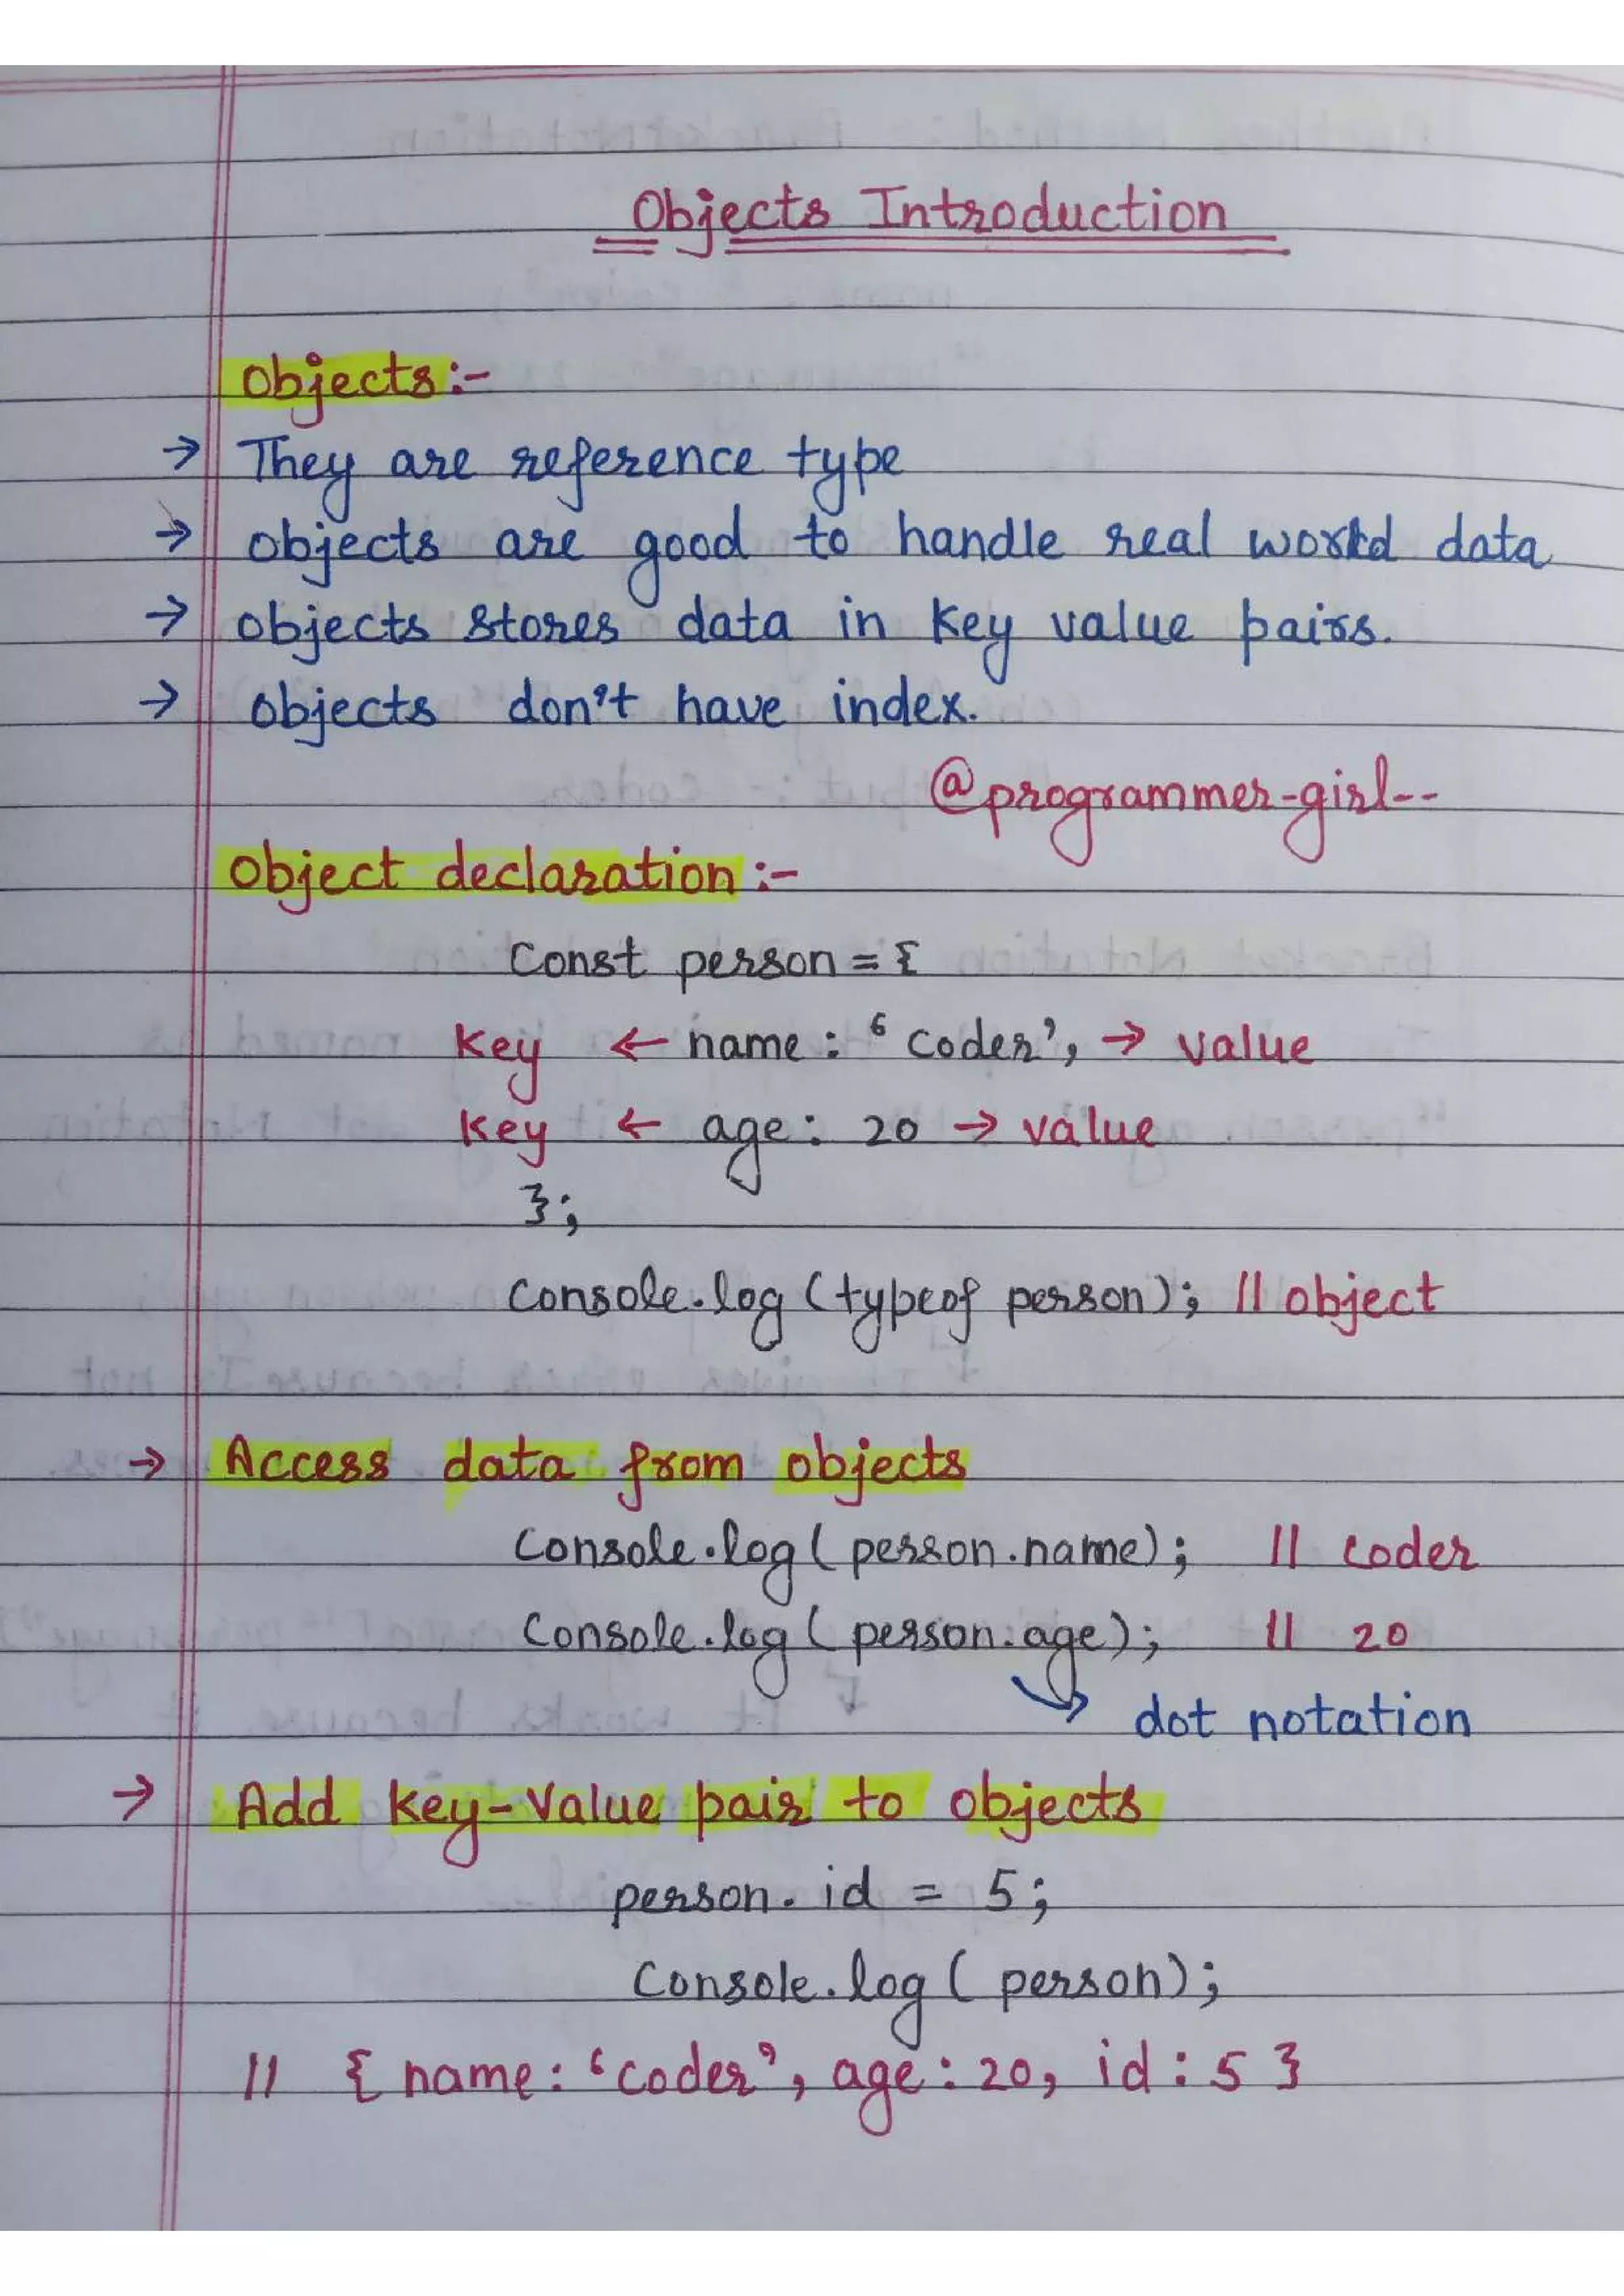 Objects Introduction
Objects:-
→ They are reference type
→ objects are good to handle real world data
→ objects stores data in key value pairs.
→ objects don't have index.
@programmer-girl--
Object declaration :-
Const person = {
key ← name : ‘coder’, → value
key ← age : 20 → value
};
Console.log (typeof person); // object
→ Access data from objects
Console.log ( person.name); // coder
Console.log ( person.age); // 20
dot notation
→ Add key-value pair to objects
person.id = 5;
Console.log ( person);
// { name : ‘coder’, age : 20, id : 5 }